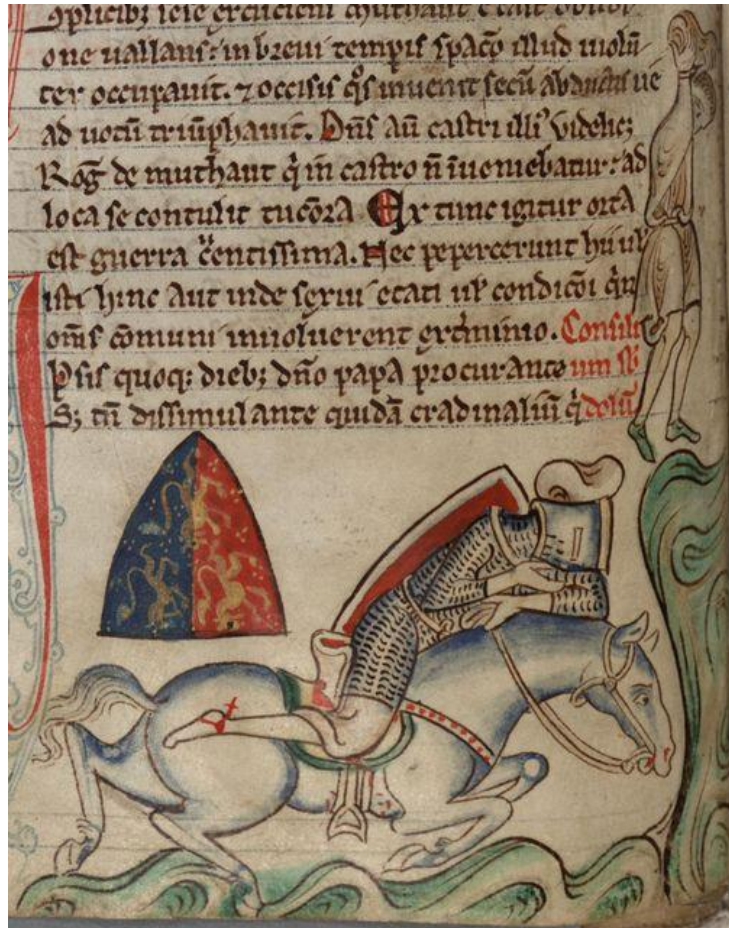 one uallans: in breui temporis spacio illud uiolen
ter occupauit. ⁊ occisis q̃s inuenit secũ
ad uotũ triũphauit. Dñs aũ castri illi᷒ videlic;
Rog̃ de muthaut q̇ in castro ñ inueniebatur: ad
loca se contulit tuc̃ora Ex tunc igitur orta
est guerra c̃entissima. Nec pepercerunt hii ul̃
isti hinc aut inde sexui etati ul̃ condic̃oi q̇n
om̃s c̃omuni inuoluerent ext̃minio. Consili
Ipsis quoq; dieb; dño papa procurante um sb̃
S; tñ dissimulante quidã cradinaliũ q̇ dolũ